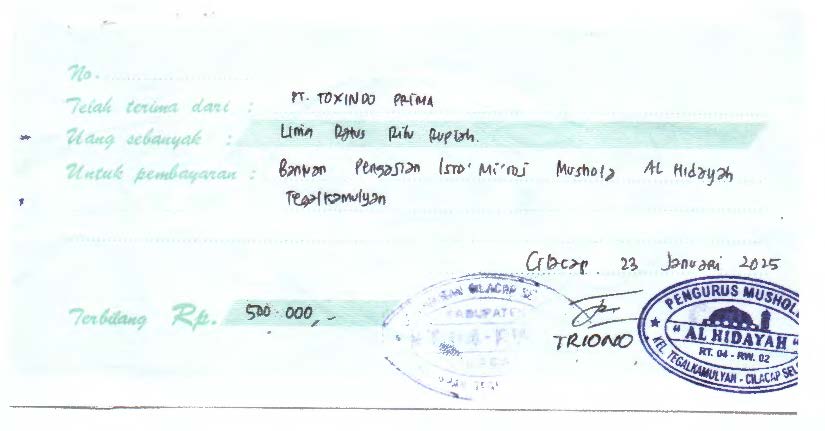 No.
Telah terima dari : PT. TOXINDO PRIMA
Uang sebanyak : Lima Ratus Ribu Rupiah.
Untuk pembayaran : Bantuan Pengajian Isro' Mi'roj Mushola AL Hidayah
Tegalkamulyan
Cilacap 23 Januari 2025
Terbilang Rp. 500.000,-
CILACAP SE
KABUPATEN
TRIONO
PENGURUS MUSHOLA
" AL HIDAYAH "
RT. 04 - RW. 02
KEL. TEGALKAMULYAN - CILACAP SEL